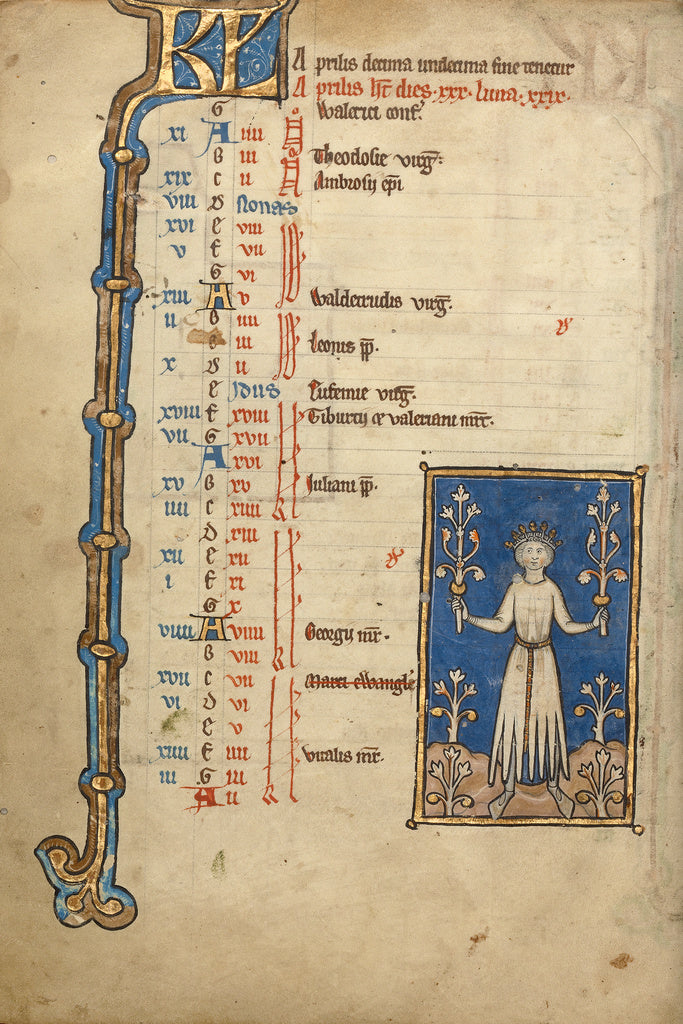 KL Aprilis decima undecima fine tenetur
Aprilis ht dies xxx. luna. xxix.
G Walerici conf.
xi A iiii
B iii Theodosie virg:
xix c ii Ambrosij epi
viii D Nonas
xvi E viii
v F vii
G vi
xiii A v Waldetrudis virg.
ii B iiii
iii Leonis pp.
x D ii
E Idus Eufemie virg.
xviii F xviii Tiburtij et valeriani mrr.
vii G xvii
A xvi
xv B xv Iuliani pp.
iiii C xiiii
D xiii
xii E xii
i F xi
G x
viiii A viiii Georgij mr.
B viii
xvii C vii Marci ewangle
vi D vi
E v
xiiii F iiii Vitalis mr.
iii G iii
A ii